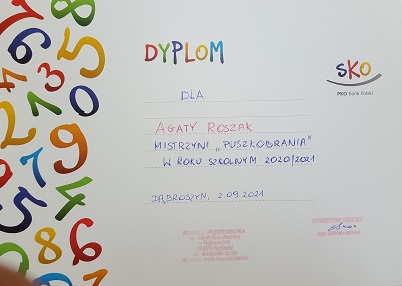 DYPLOM
SKO
PKO Bank Polski
DLA
AGATY ROSZAK
MISTRZYNI „PUSZKOBRANIA”
W ROKU SZKOLNYM 2020/2021
DĄBROSZYN, 2.09.2021